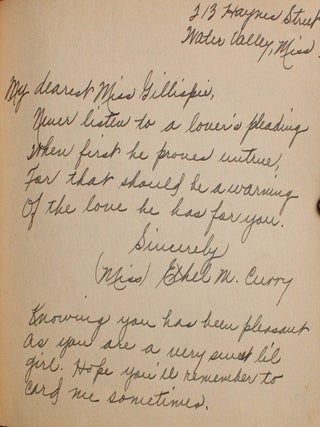 213 Haynes Street
Water Valley, Miss.
My dearest Miss Gillispie,
Never listen to a lover's pleading
When first he proves untrue,
For that should be a warning
Of the love he has for you.
Sincerely
(Miss) Ethel M. Curry
Knowing you has been pleasant
as you are a very sweet li'l
girl. Hope you'll remember to
card me sometimes.